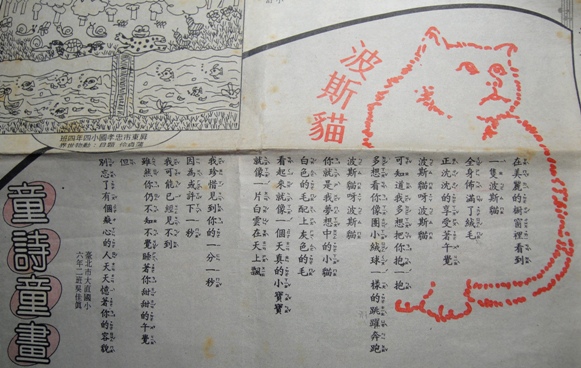 波斯貓
在美麗的櫥窗裡看到
一隻波斯貓
全身佈滿了絨毛
正沈沈的享受著午覺
波斯貓呀波斯貓
可知道我多想把你抱一抱
多想看你像團小絨球一樣的跳躍奔跑
波斯貓呀波斯貓
你就是我夢想中的小貓
白色的毛配上灰色的毛
看起來就像一個天真的小寶寶
就像一片白雲在天上飄
我珍惜見到你的一分一秒
因為或許下一秒
我可能已經見不到
雖然你仍不知不覺睡著你甜甜的午覺
但
別忘了有個痴心的人天天憶著你的容貌
臺北市大直國小
六年二班吳佳真
童詩童畫
屏東市忠孝國小四年四班